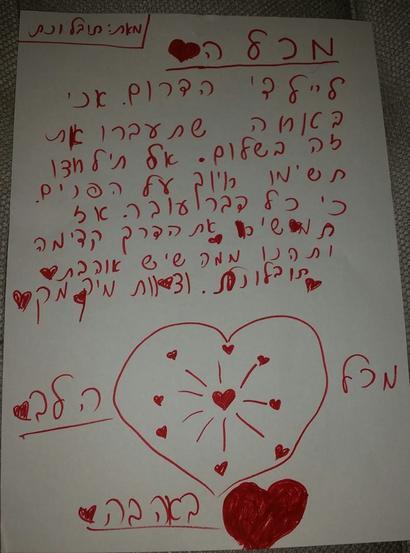 מאת: תובל ונת
מכל ה
לייל די הדרום. אני
בטוחה שתעברו את
זה בשלום. אל תילחצו
תשימו חיוך על הפנים.
כי כל דבר עובר. אז
תמשיכו את הדרך קדימה
ותהנו ממה שיש אוהבת
מכל
הלב
באהבה